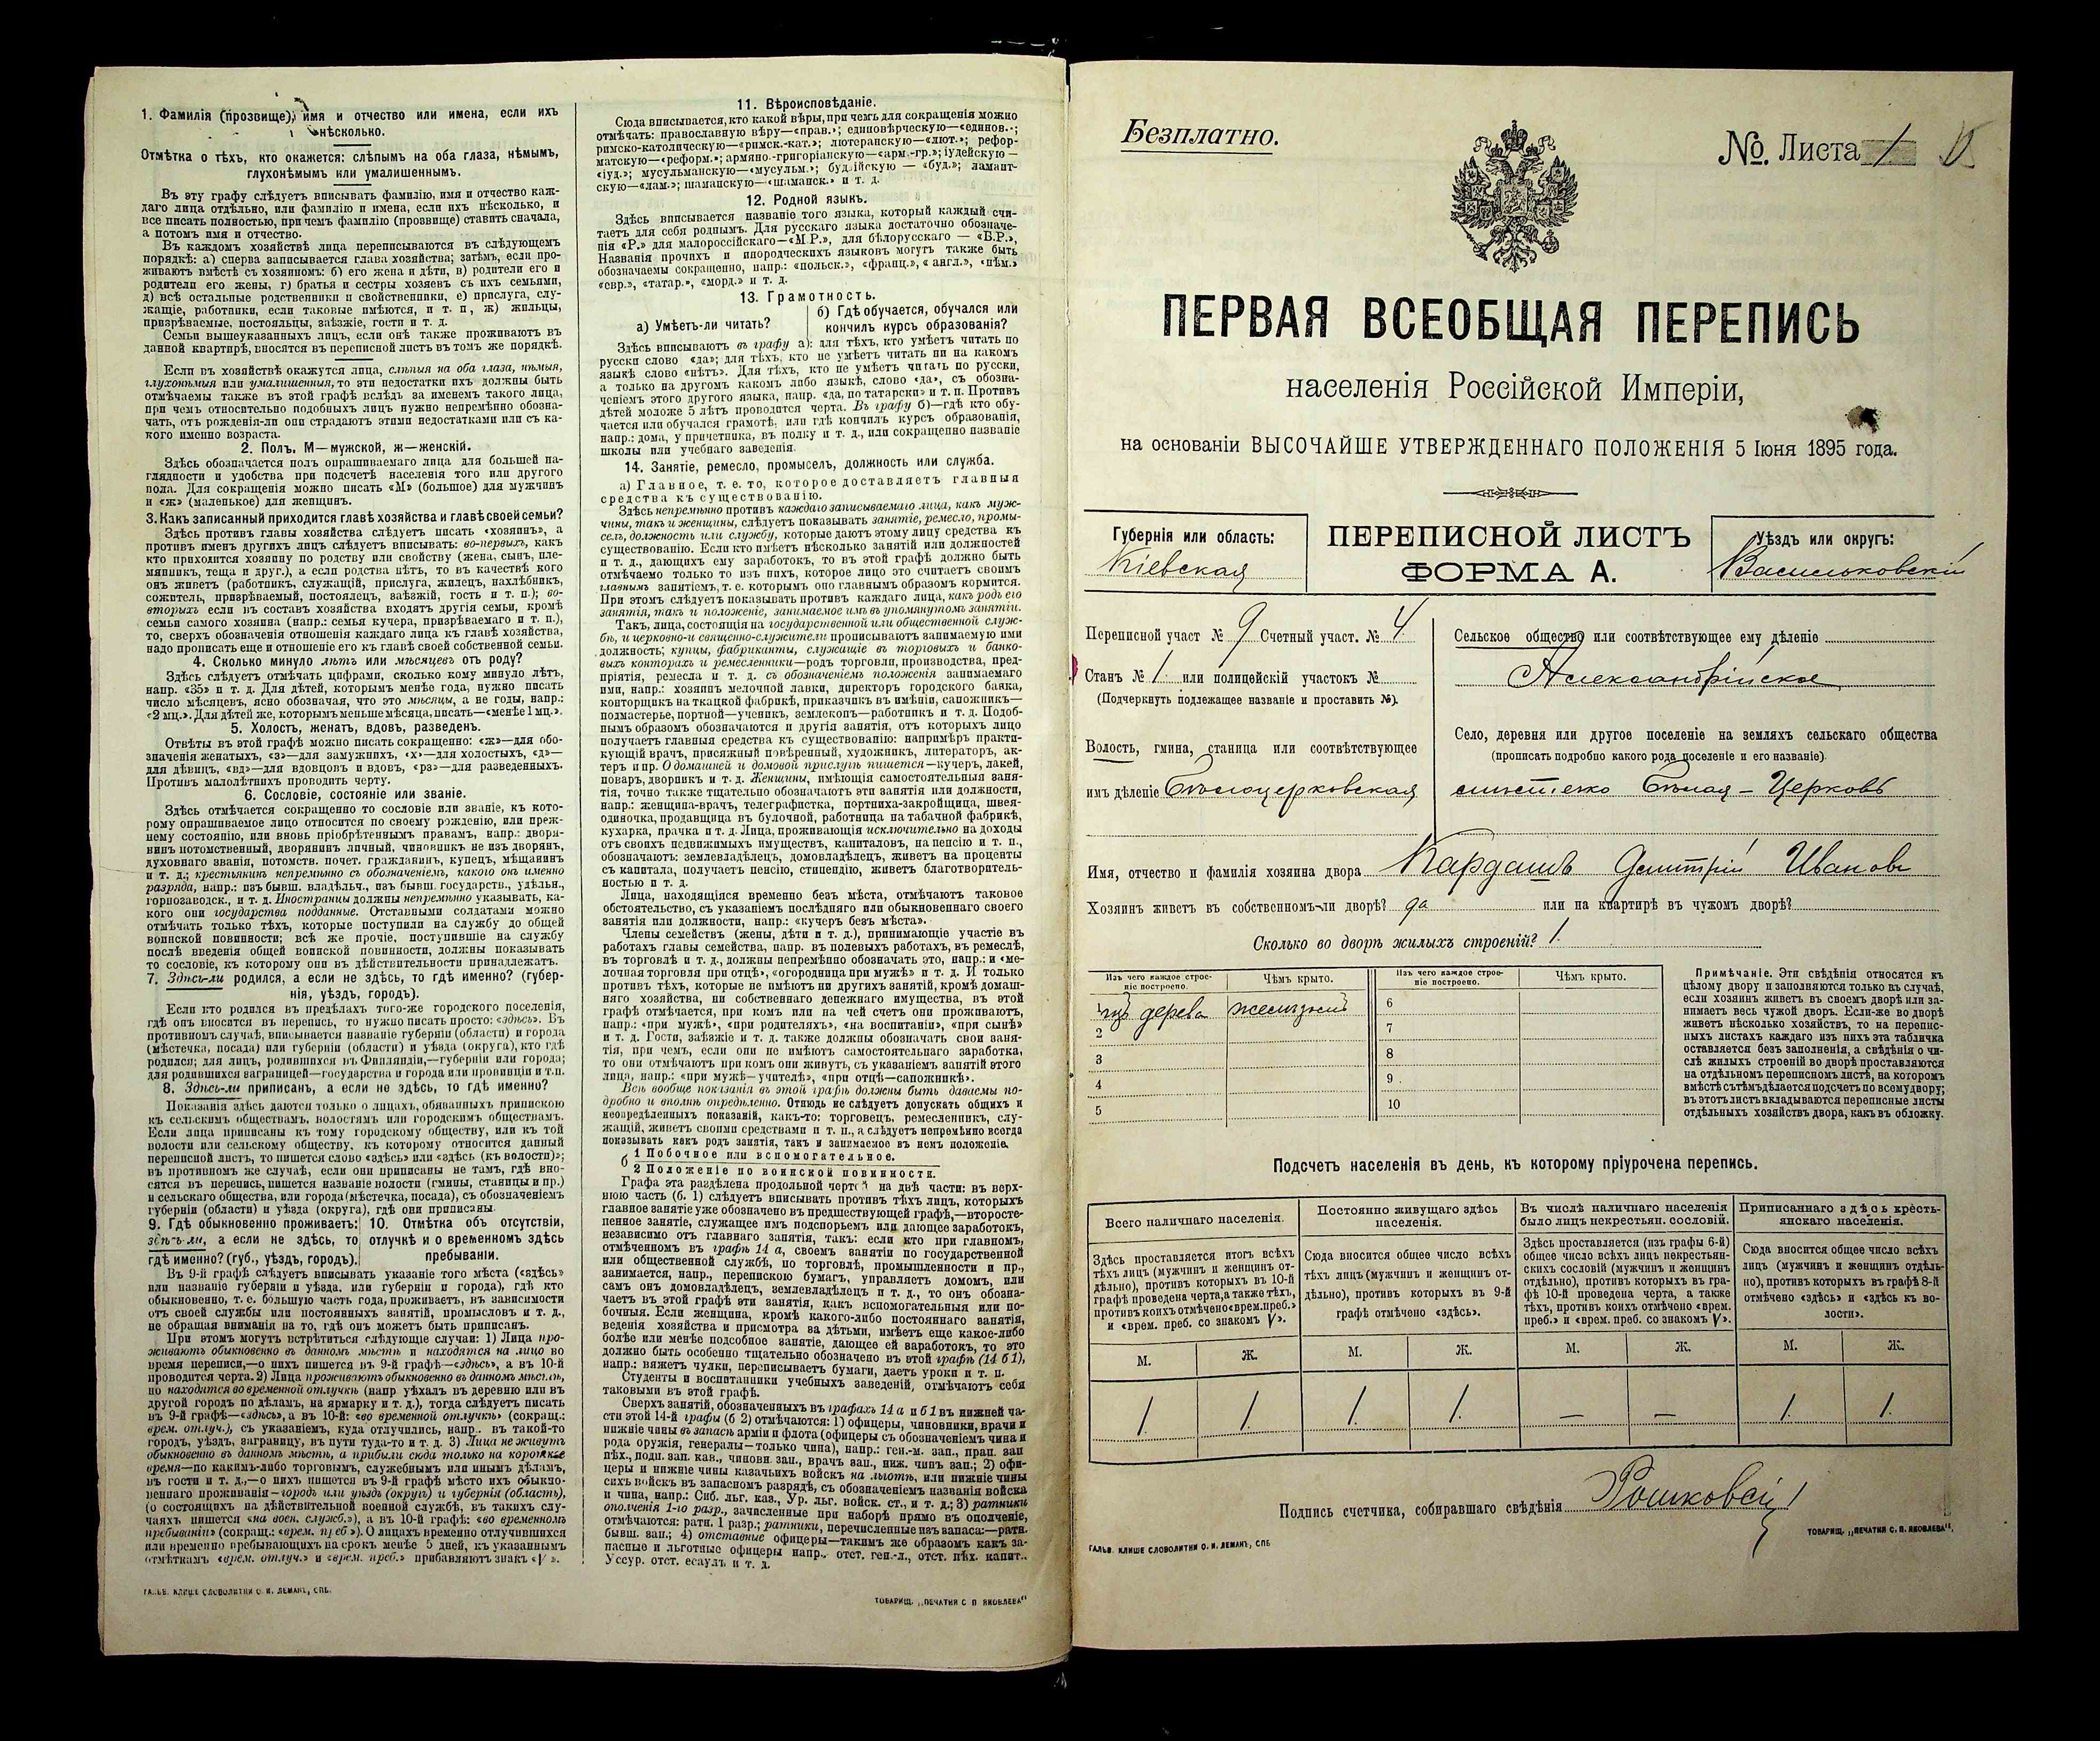 1. Фамилія (прозвище), имя и отчество или имена, если ихъ
нѣсколько.
Отмѣтка о тѣхъ, кто окажется: слѣпымъ на оба глаза, нѣмымъ,
глухонѣмымъ или умалишеннымъ.
Въ эту графу слѣдуетъ вписывать фамилію, имя и отчество каж-
даго лица отдѣльно, или фамилію и имена, если ихъ нѣсколько, и
все писать полностью, при чемъ фамилію (прозвище) ставить сначала,
а потомъ имя и отчество.
Въ каждомъ хозяйствѣ лица переписываются въ слѣдующемъ
порядкѣ: а) сперва записывается глава хозяйства; затѣмъ, если про-
живаютъ вмѣстѣ съ хозяиномъ: б) его жена и дѣти, в) родители его и
родители его жены, г) братья и сестры хозяевъ съ ихъ семьями,
д) всѣ остальные родственники и свойственники, е) прислуга, слу-
жащіе, работники, если таковые имѣются, и т. п, ж) жильцы,
призрѣваемые, постояльцы, заѣзжіе, гости и т. д.
Семьи вышеуказанныхъ лицъ, если онѣ также проживаютъ въ
данной квартирѣ, вносятся въ переписной листъ въ томъ же порядкѣ.
Если въ хозяйствѣ окажутся лица, слѣпыя на оба глаза, нѣмыя,
глухонѣмыя или умалишенныя, то эти недостатки ихъ должны быть
отмѣчаемы также въ этой графѣ вслѣдъ за именемъ такого лица,
при чемъ относительно подобныхъ лицъ нужно непремѣнно обозна-
чать, отъ рожденія-ли они страдаютъ этими недостатками или съ ка-
кого именно возраста.
2. Полъ, М—мужской, ж—женскій.
Здѣсь обозначается полъ опрашиваемаго лица для большей на-
глядности и удобства при подсчетѣ населенія того или другого
пола. Для сокращенія можно писать «М» (большое) для мужчинъ
и «ж» (маленькое) для женщинъ.
3. Какъ записанный приходится главѣ хозяйства и главѣ своей семьи?
Здѣсь противъ главы хозяйства слѣдуетъ писать «хозяинъ», а
противъ именъ другихъ лицъ слѣдуетъ вписывать: во-первыхъ, какъ
кто приходится хозяину по родству или свойству (жена, сынъ, пле-
мянникъ, теща и друг.), а если родства нѣтъ, то въ качествѣ кого
онъ живетъ (работникъ, служащій, прислуга, жилецъ, нахлѣбникъ,
сожитель, призрѣваемый, постоялецъ, заѣзжій, гость и т. п.); во-
вторыхъ если въ составъ хозяйства входятъ другія семьи, кромѣ
семьи самого хозяина (напр.: семья кучера, призрѣваемаго и т. п.),
то, сверхъ обозначенія отношенія каждаго лица къ главѣ хозяйства,
надо прописать еще и отношеніе его къ главѣ своей собственной семьи.
4. Сколько минуло лѣтъ или мѣсяцевъ отъ роду?
Здѣсь слѣдуетъ отмѣчать цифрами, сколько кому минуло лѣтъ,
напр. «35» и т. д. Для дѣтей, которымъ менѣе года, нужно писать
число мѣсяцевъ, ясно обозначая, что это мѣсяцы, а не годы, напр.:
«2 мц.». Для дѣтей же, которымъ меньше мѣсяца, писать—«менѣе 1 мц.».
5. Холостъ, женатъ, вдовъ, разведенъ.
Отвѣты въ этой графѣ можно писать сокращенно: «ж»—для обо-
значенія женатыхъ, «з»—для замужнихъ, «х»—для холостыхъ, «д»—
для дѣвицъ, «вд»—для вдовцовъ и вдовъ, «рз»—для разведенныхъ.
Противъ малолѣтнихъ проводить черту.
6. Сословіе, состояніе или званіе.
Здѣсь отмѣчается сокращенно то сословіе или званіе, къ кото-
рому опрашиваемое лицо относится по своему рожденію, или преж-
нему состоянію, или вновь пріобрѣтеннымъ правамъ, напр.: дворя-
нинъ потомственный, дворянинъ личный, чиновникъ не изъ дворянъ,
духовнаго званія, потомств. почет. гражданинъ, купецъ, мѣщанинъ
и т. д.; крестьянинъ непремѣнно съ обозначеніемъ, какого онъ именно
разряда, напр.: изъ бывш. владѣльч., изъ бывш. государств., удѣльн.,
горнозаводск., и т. д. Иностранцы должны непремѣнно указывать, ка-
кого они государства подданные. Отставными солдатами можно
отмѣчать только тѣхъ, которые поступили на службу до общей
воинской повинности; всѣ же прочіе, поступившіе на службу
послѣ введенія общей воинской повинности, должны показывать
то сословіе, къ которому они въ дѣйствительности принадлежатъ.
7. Здѣсь-ли родился, а если не здѣсь, то гдѣ именно? (губер-
нія, уѣздъ, городъ).
Если кто родился въ предѣлахъ того-же городского поселенія,
гдѣ онъ вносится въ перепись, то нужно писать просто: «здѣсь». Въ
противномъ случаѣ, вписывается названіе губерніи (области) и города
(мѣстечка, посада) или губерніи (области) и уѣзда (округа), кто гдѣ
родился; для лицъ, родившихся въ Финляндіи,—губерніи или города;
для родившихся заграницей—государства и города или провинціи и т.п.
8. Здѣсь-ли приписанъ, а если не здѣсь, то гдѣ именно?
Показанія здѣсь даются только о лицахъ, обязанныхъ припискою
къ сельскимъ обществамъ, волостямъ или городскимъ обществамъ.
Если лица приписаны къ тому городскому обществу, или къ той
волости или сельскому обществу, къ которому относится данный
переписной листъ, то пишется слово «здѣсь» или «здѣсь (къ волости)»;
въ противномъ же случаѣ, если они приписаны не тамъ, гдѣ вно-
сятся въ перепись, пишется названіе волости (гмины, станицы и пр.)
и сельскаго общества, или города (мѣстечка, посада), съ обозначеніемъ
губерніи (области) и уѣзда (округа), гдѣ они приписаны.
9. Гдѣ обыкновенно проживаетъ:
здѣсь-ли, а если не здѣсь, то
гдѣ именно? (губ., уѣздъ, городъ).
10. Отмѣтка объ отсутствіи,
отлучкѣ и о временномъ здѣсь
пребываніи.
Въ 9-й графѣ слѣдуетъ вписывать указаніе того мѣста («здѣсь»
или названіе губерніи и уѣзда, или губерніи и города), гдѣ кто
обыкновенно, т. е. большую часть года, проживаетъ, въ зависимости
отъ своей службы или постоянныхъ занятій, промысловъ и т. д.,
не обращая вниманія на то, гдѣ онъ можетъ быть приписанъ.
При этомъ могутъ встрѣтиться слѣдующіе случаи: 1) Лица про-
живаютъ обыкновенно въ данномъ мѣстѣ и находятся на лицо во
время переписи,—о нихъ пишется въ 9-й графѣ—«здѣсь», а въ 10-й
проводится черта. 2) Лица проживаютъ обыкновенно въ данномъ мѣстѣ,
но находятся во временной отлучкѣ (напр уѣхалъ въ деревню или въ
другой городъ по дѣламъ, на ярмарку и т. д.), тогда слѣдуетъ писать
въ 9-й графѣ—«здѣсь», а въ 10-й: «во временной отлучкѣ» (сокращ.:
врем. отлуч.), съ указаніемъ, куда отлучились, напр.. въ такой-то
городъ, уѣздъ, заграницу, въ пути туда-то и т. д. 3) Лица не живутъ
обыкновенно въ данномъ мѣстѣ, а прибыли сюда только на короткое
время—по какимъ-либо торговымъ, служебнымъ или инымъ дѣламъ,
въ гости и т. д.,—о нихъ пишется въ 9-й графѣ мѣсто ихъ обыкно-
веннаго проживанія—городъ или уѣздъ (округъ) и губернія (область),
(о состоящихъ на дѣйствительной военной службѣ, въ такихъ слу-
чаяхъ пишется «на воен. служб.»), а въ 10-й графѣ: «во временномъ
пребываніи» (сокращ.: «врем. преб.»). О лицахъ временно отлучившихся
или временно пребывающихъ на срокъ менѣе 5 дней, къ указаннымъ
отмѣткамъ «врем. отлуч.» и «врем. преб.» прибавляютъ знакъ «V».
ГАЛЬВ. КЛИШЕ СЛОВОЛИТНИ О. И. ЛЕМАНЪ, СПБ.
11. Вѣроисповѣданіе.
Сюда вписывается, кто какой вѣры, при чемъ для сокращенія можно
отмѣчать: православную вѣру—«прав.»; единовѣрческую—«единов.»;
римско-католическую—«римск.-кат.»; лютеранскую—«лют.»; рефор-
матскую—«реформ.»; армяно-григоріанскую—«арм.-гр.»; іудейскую—
«іуд.»; мусульманскую—«мусульм.»; буддійскую — «буд.»; ламаит-
скую—«лам.»; шаманскую—«шаманск.» и т. д.
12. Родной языкъ.
Здѣсь вписывается названіе того языка, который каждый счи-
таетъ для себя роднымъ. Для русскаго языка достаточно обозначе-
нія «Р.» для малороссійскаго—«М.Р.», для бѣлорусскаго — «Б.Р.»,
Названія прочихъ и инородческихъ языковъ могутъ также быть
обозначаемы сокращенно, напр.: «польск.», «франц.», «англ.», «нѣм.»
«евр.», «татар.», «морд.» и т. д.
13. Грамотность.
а) Умѣетъ-ли читать?
б) Гдѣ обучается, обучался или
кончилъ курсъ образованія?
Здѣсь вписываютъ въ графу а): для тѣхъ, кто умѣетъ читать по
русски слово «да»; для тѣхъ, кто не умѣетъ читать ни на какомъ
языкѣ слово «нѣтъ». Для тѣхъ, кто не умѣетъ читать по русски,
а только на другомъ какомъ либо языкѣ, слово «да», съ обозна-
ченіемъ этого другого языка, напр. «да, по татарски» и т. п. Противъ
дѣтей моложе 5 лѣтъ проводится черта. Въ графу б)—гдѣ кто обу-
чается или обучался грамотѣ, или гдѣ кончилъ курсъ образованія,
напр.: дома, у причетника, въ полку и т. д., или сокращенно названіе
школы или учебнаго заведенія.
14. Занятіе, ремесло, промыселъ, должность или служба.
а) Главное, т. е. то, которое доставляетъ главныя
средства къ существованію.
Здѣсь непремѣнно противъ каждаго записываемаго лица, какъ муж-
чины, такъ и женщины, слѣдуетъ показывать занятіе, ремесло, промы-
селъ, должность или службу, которые даютъ этому лицу средства къ
существованію. Если кто имѣетъ нѣсколько занятій или должностей
и т. д., дающихъ ему заработокъ, то въ этой графѣ должно быть
отмѣчаемо только то изъ нихъ, которое лицо это считаетъ своимъ
главнымъ занятіемъ, т. е. которымъ оно главнымъ образомъ кормится.
При этомъ слѣдуетъ показывать противъ каждаго лица, какъ родъ его
занятія, такъ и положеніе, занимаемое имъ въ упомянутомъ занятіи.
Такъ, лица, состоящія на государственной или общественной служ-
бѣ, и церковно-и священно-служители прописываютъ занимаемую ими
должность; купцы, фабриканты, служащіе въ торговыхъ и банко-
выхъ конторахъ и ремесленники—родъ торговли, производства, пред-
пріятія, ремесла и т. д. съ обозначеніемъ положенія занимаемаго
ими, напр.: хозяинъ мелочной лавки, директоръ городского банка,
конторщикъ на ткацкой фабрикѣ, приказчикъ въ имѣніи, сапожникъ—
подмастерье, портной—ученикъ, землекопъ—работникъ и т. д. Подоб-
нымъ образомъ обозначаются и другія занятія, отъ которыхъ лицо
получаетъ главныя средства къ существованію: напримѣръ практи-
кующій врачъ, присяжный повѣренный, художникъ, литераторъ, ак-
теръ и пр. О домашней и домовой прислугѣ пишется—кучеръ, лакей,
поваръ, дворникъ и т. д. Женщины, имѣющія самостоятельныя заня-
тія, точно также тщательно обозначаютъ эти занятія или должности,
напр.: женщина-врачъ, телеграфистка, портниха-закройщица, швея-
одиночка, продавщица въ булочной, работница на табачной фабрикѣ,
кухарка, прачка и т. д. Лица, проживающія исключительно на доходы
отъ своихъ недвижимыхъ имуществъ, капиталовъ, на пенсію и т. п.,
обозначаютъ: землевладѣлецъ, домовладѣлецъ, живетъ на проценты
съ капитала, получаетъ пенсію, стипендію, живетъ благотворитель-
ностью и т. д.
Лица, находящіяся временно безъ мѣста, отмѣчаютъ таковое
обстоятельство, съ указаніемъ послѣдняго или обыкновеннаго своего
занятія или должности, напр.: «кучеръ безъ мѣста».
Члены семействъ (жены, дѣти и т. д.), принимающіе участіе въ
работахъ главы семейства, напр. въ полевыхъ работахъ, въ ремеслѣ,
въ торговлѣ и т. д., должны непремѣнно обозначать это, напр.: и «ме-
лочная торговля при отцѣ», «огородница при мужѣ» и т. д. И только
противъ тѣхъ, которые не имѣютъ ни другихъ занятій, кромѣ домаш-
няго хозяйства, ни собственнаго денежнаго имущества, въ этой
графѣ отмѣчается, при комъ или на чей счетъ они проживаютъ,
напр.: «при мужѣ», «при родителяхъ», «на воспитаніи», «при сынѣ»
и т. д. Гости, заѣзжіе и т. д. также должны обозначать свои заня-
тія, при чемъ, если они не имѣютъ самостоятельнаго заработка,
то они отмѣчаютъ при комъ они живутъ, съ указаніемъ занятій этого
лица, напр.: «при мужѣ—учителѣ», «при отцѣ—сапожникѣ».
Всѣ вообще показанія въ этой графѣ должны быть даваемы по-
дробно и вполнѣ опредѣленно. Отнюдь не слѣдуетъ допускать общихъ и
неопредѣленныхъ показаній, какъ-то: торговецъ, ремесленникъ, слу-
жащій, живетъ своими средствами и т. п., а слѣдуетъ непремѣнно всегда
показывать какъ родъ занятія, такъ и занимаемое въ немъ положеніе.
б 1 Побочное или вспомогательное.
2 Положеніе по воинской повинности.
Графа эта раздѣлена продольной чертой на двѣ части: въ верх-
нюю часть (б. 1) слѣдуетъ вписывать противъ тѣхъ лицъ, которыхъ
главное занятіе уже обозначено въ предшествующей графѣ,—второсте-
пенное занятіе, служащее имъ подспорьемъ или дающее заработокъ,
независимо отъ главнаго занятія, такъ: если кто при главномъ,
отмѣченномъ въ графѣ 14 а, своемъ занятіи по государственной
или общественной службѣ, по торговлѣ, промышленности и пр.,
занимается, напр., перепискою бумагъ, управляетъ домомъ, или
самъ онъ домовладѣлецъ, землевладѣлецъ и т. д., то онъ обозна-
чаетъ въ этой графѣ эти занятія, какъ вспомогательныя или по-
бочныя. Если женщина, кромѣ какого-либо постояннаго занятія,
веденія хозяйства и присмотра за дѣтьми, имѣетъ еще какое-либо
болѣе или менѣе подсобное занятіе, дающее ей заработокъ, то это
должно быть особенно тщательно обозначено въ этой графѣ (14 б 1),
напр.: вяжетъ чулки, переписываетъ бумаги, даетъ уроки и т. п.
Студенты и воспитанники учебныхъ заведеній, отмѣчаютъ себя
таковыми въ этой графѣ.
Сверхъ занятій, обозначенныхъ въ графахъ 14 а и б 1 въ нижней ча-
сти этой 14-й графы (б 2) отмѣчаются: 1) офицеры, чиновники, врачи и
нижніе чины въ запасѣ арміи и флота (офицеры съ обозначеніемъ чина и
рода оружія, генералы—только чина), напр.: ген.-м. зап., прап. зап
пѣх., подп. зап. кав., чиновн. зап., врачъ зап., ниж. чинъ зап.; 2) офи-
церы и нижніе чины казачьихъ войскъ на льготѣ, или нижніе чины
сихъ войскъ въ запасномъ разрядѣ, съ обозначеніемъ названія войска
и чина, напр.: Сиб. льг. каз., Ур. льг. войск. ст., и т. д.; 3) ратники
ополченія 1-го разр., зачисленные при наборѣ прямо въ ополченіе,
отмѣчаются: ратн. 1 разр.; ратники, перечисленные изъ запаса:—ратн.
бывш. зап.; 4) отставные офицеры—такимъ же образомъ какъ за-
пасные и льготные офицеры напр., отст. ген.-л., отст. пѣх. капит.,
Уссур. отст. есаулъ и т. д.
ТОВАРИЩ. „ПЕЧАТНЯ С П ЯКОВЛЕВА“
Безплатно.
№. Листа 1
ПЕРВАЯ ВСЕОБЩАЯ ПЕРЕПИСЬ
населенія Россійской Имперіи,
на основаніи ВЫСОЧАЙШЕ УТВЕРЖДЕННАГО ПОЛОЖЕНІЯ 5 Іюня 1895 года.
Губернія или область:
Кіевская
ПЕРЕПИСНОЙ ЛИСТЪ
ФОРМА А.
Уѣздъ или округъ:
Васильковскій
Переписной участ № 9 Счетный участ. № 4.
Станъ № 1. или полицейскій участокъ №
(Подчеркнуть подлежащее названіе и проставить №).
Волость, гмина, станица или соотвѣтствующее
имъ дѣленіе Бѣлоцерковская
Сельское общество или соотвѣтствующее ему дѣленіе
Александрійское
Село, деревня или другое поселеніе на земляхъ сельскаго общества
(прописать подробно какого рода поселеніе и его названіе).
мѣстечко Бѣлая - Церковь
Имя, отчество и фамилія хозяина двора Кардашъ Дмитрій Ивановъ
Хозяинъ живетъ въ собственномъ-ли дворѣ? да или на квартирѣ въ чужомъ дворѣ?
Сколько во дворѣ жилыхъ строеній? 1.
Изъ чего каждое строе-
ніе построено.
Чѣмъ крыто.
Изъ чего каждое строе-
ніе построено.
Чѣмъ крыто.
1 изъ дерева желѣзомъ
2
3
4
5
6
7
8
9
10
Примѣчаніе. Эти свѣдѣнія относятся къ
цѣлому двору и заполняются только въ случаѣ,
если хозяинъ живетъ въ своемъ дворѣ или за-
нимаетъ весь чужой дворъ. Если-же во дворѣ
живетъ нѣсколько хозяйствъ, то на перепис-
ныхъ листахъ каждаго изъ нихъ эта табличка
оставляется безъ заполненія, а свѣдѣнія о чи-
слѣ жилыхъ строеній во дворѣ проставляются
на отдѣльномъ переписномъ листѣ, на которомъ
вмѣстѣ съ тѣмъ дѣлается подсчетъ по всему двору;
въ этотъ листъ вкладываются переписные листы
отдѣльныхъ хозяйствъ двора, какъ въ обложку.
Подсчетъ населенія въ день, къ которому пріурочена перепись.
Всего наличнаго населенія.
Здѣсь проставляется итогъ всѣхъ
тѣхъ лицъ (мужчинъ и женщинъ от-
дѣльно), противъ которыхъ въ 10-й
графѣ проведена черта, а также тѣхъ,
противъ коихъ отмѣчено «врем. преб.»
и «врем. преб. со знакомъ V».
Постоянно живущаго здѣсь
населенія.
Сюда вносится общее число всѣхъ
тѣхъ лицъ (мужчинъ и женщинъ от-
дѣльно), противъ которыхъ въ 9-й
графѣ отмѣчено «здѣсь».
Въ числѣ наличнаго населенія
было лицъ некрестьян. сословій.
Здѣсь проставляется (изъ графы 6-й)
общее число всѣхъ лицъ некрестьян-
скихъ сословій (мужчинъ и женщинъ
отдѣльно), противъ которыхъ въ гра-
фѣ 10-й проведена черта, а также
тѣхъ, противъ коихъ отмѣчено «врем.
преб.» и «врем. преб. со знакомъ V».
Приписаннаго здѣсь кресть-
янскаго населенія.
Сюда вносится общее число всѣхъ
лицъ (мужчинъ и женщинъ отдѣль-
но), противъ которыхъ въ графѣ 8-й
отмѣчено «здѣсь» и «здѣсь къ во-
лости».
М. Ж. М. Ж. М. Ж. М. Ж.
1. 1. 1. 1. — — 1. 1.
Подпись счетчика, собиравшаго свѣдѣнія
ГАЛЬВ. КЛИШЕ СЛОВОЛИТНИ О. И. ЛЕМАНЪ, СПБ
ТОВАРИЩ. „ПЕЧАТНЯ С. П. ЯКОВЛЕВА“.